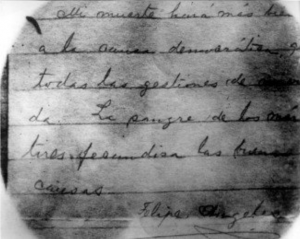 Mi muerte hará más bien
a la causa democrática q
todas las gestiones de
da. La sangre de los már
tires fecundisa las buenas
causas
Felipe Angeles